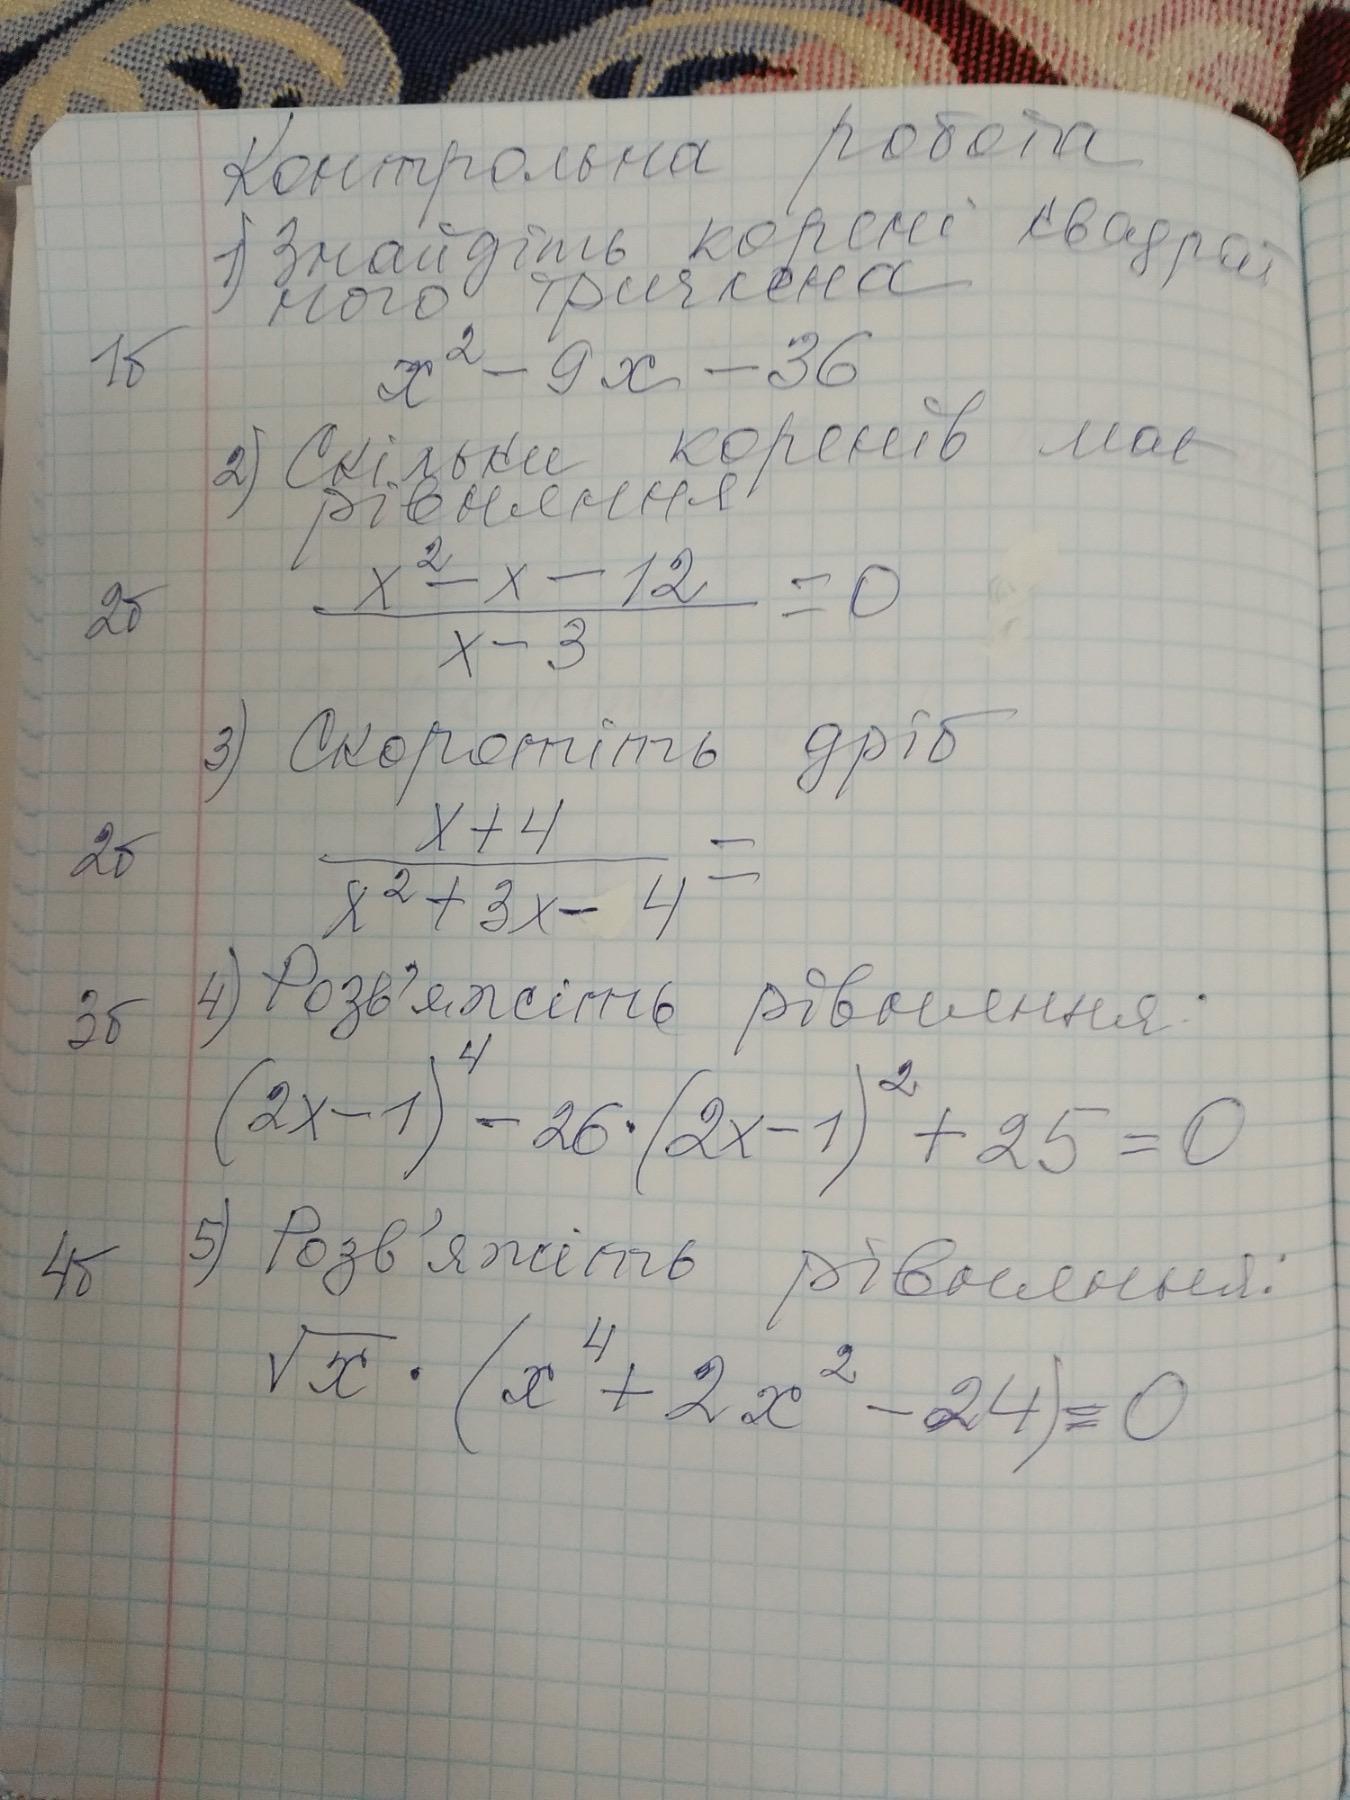 Контрольна робота
1) Знайдіть корені квадрат
ного тричлена
1б x² - 9x - 36
2) Скільки коренів має
рівняння
2б (x² - x - 12)/(x - 3) = 0
3) Скоротіть дріб
2б (x + 4)/(x² + 3x - 4) =
3б 4) Розв'яжіть рівняння:
(2x - 1)⁴ - 26·(2x - 1)² + 25 = 0
4б 5) Розв'яжіть рівняння:
√x · (x⁴ + 2x² - 24) = 0